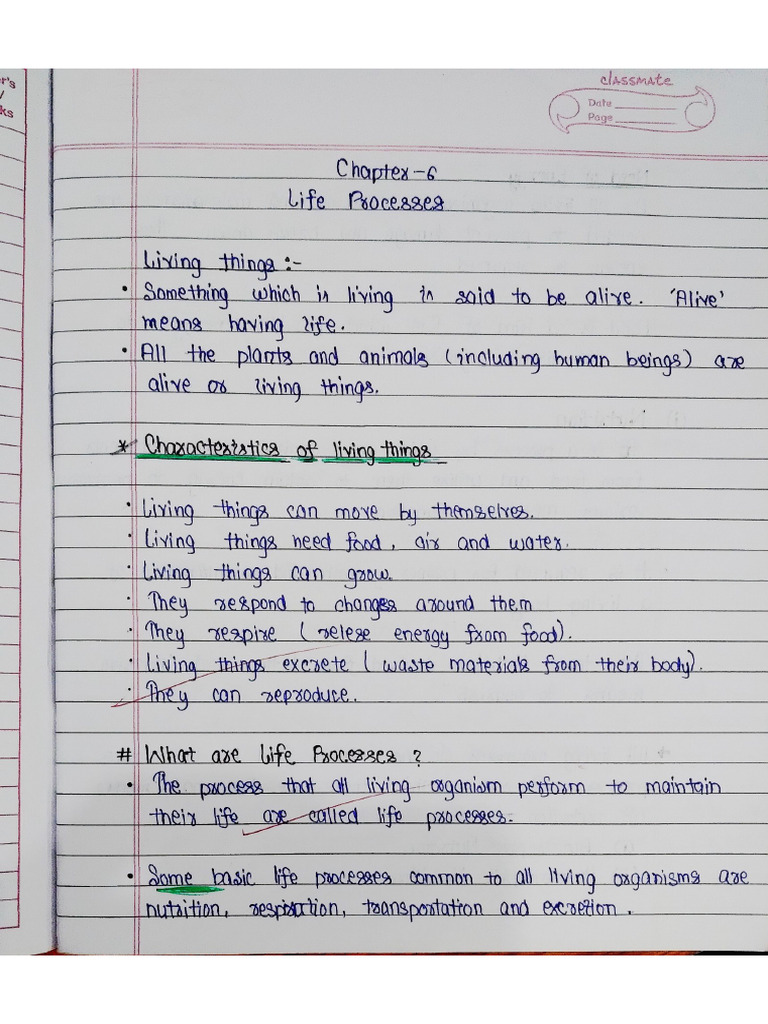 r's
/
ks
classmate
Date
Page
Chapter-6
Life Processes
Living things :-
• Something which is living is said to be alive. 'Alive'
means having life.
• All the plants and animals (including human beings) are
alive or living things.
* Characteristics of living things
• Living things can move by themselves.
• Living things need food, air and water.
• Living things can grow.
• They respond to changes around them
• They respire ( relese energy from food).
• Living things excrete ( waste materials from their body).
• They can reproduce.
# What are Life Processes ?
• The process that all living organism perform to maintain
their life are called life processes.
• Some basic life processes common to all living organisms are
nutrition, respiration, transportation and excretion.